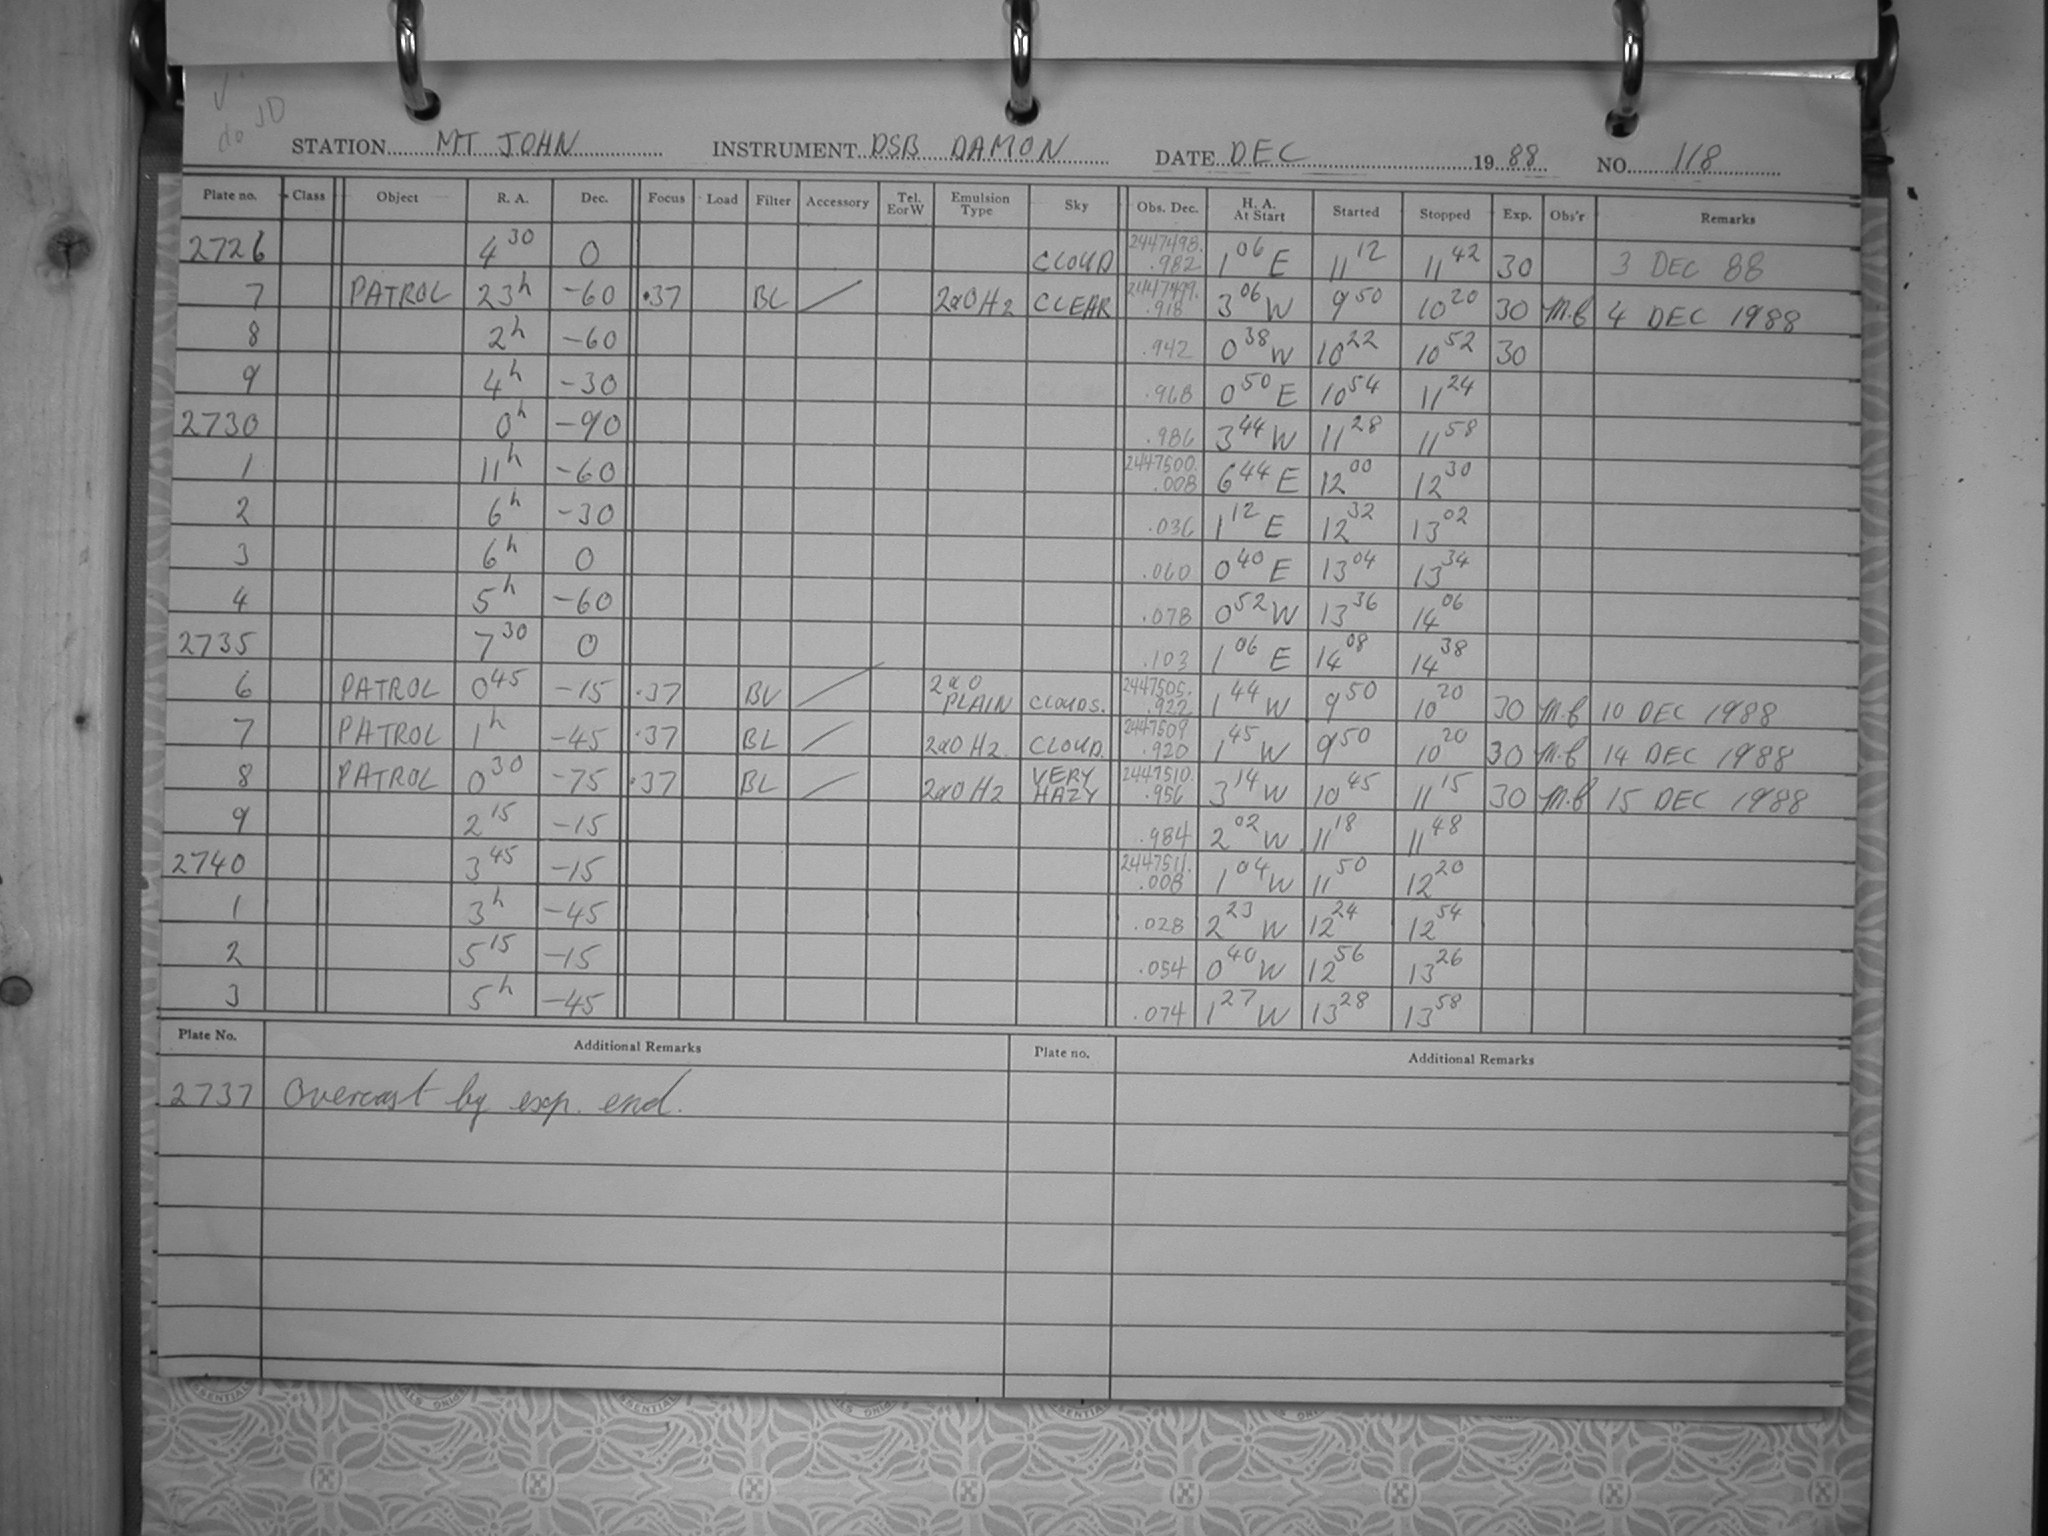 √
do JD
STATION MT JOHN INSTRUMENT DSB DAMON DATE DEC 1988 NO. 118
Plate no. Class Object R. A. Dec. Focus Load Filter Accessory Tel. E or W Emulsion Type Sky Obs. Dec. H. A. At Start Started Stopped Exp. Obs'r Remarks
2726 4 30 0 CLOUD 2447498. .982 1 06 E 11 12 11 42 30 3 DEC 88
7 PATROL 23h -60 .37 BL / 2aO H2 CLEAR 2447499. .918 3 06 W 9 50 10 20 30 M.B 4 DEC 1988
8 2h -60 .942 0 38 W 10 22 10 52 30
9 4h -30 .968 0 50 E 10 54 11 24
2730 0h -90 .986 3 44 W 11 28 11 58
1 11h -60 2447500. .008 6 44 E 12 00 12 30
2 6h -30 .036 1 12 E 12 32 13 02
3 6h 0 .060 0 40 E 13 04 13 34
4 5h -60 .078 0 52 W 13 36 14 06
2735 7 30 0 .103 1 06 E 14 08 14 38
6 PATROL 0 45 -15 .37 BL / 2aO PLAIN CLOUDS. 2447505. .922 1 44 W 9 50 10 20 30 M.B 10 DEC 1988
7 PATROL 1h -45 .37 BL / 2aO H2. CLOUD. 2447509 .920 1 45 W 9 50 10 20 30 M.B 14 DEC 1988
8 PATROL 0 30 -75 .37 BL / 2aO H2 VERY HAZY 2447510. .956 3 14 W 10 45 11 15 30 M.B 15 DEC 1988
9 2 15 -15 .984 2 02 W 11 18 11 48
2740 3 45 -15 2447511. .008 1 04 W 11 50 12 20
1 3h -45 .028 2 23 W 12 24 12 54
2 5 15 -15 .054 0 40 W 12 56 13 26
3 5h -45 .074 1 27 W 13 28 13 58
Plate No. Additional Remarks Plate no. Additional Remarks
2737 Overcast by exp. end.